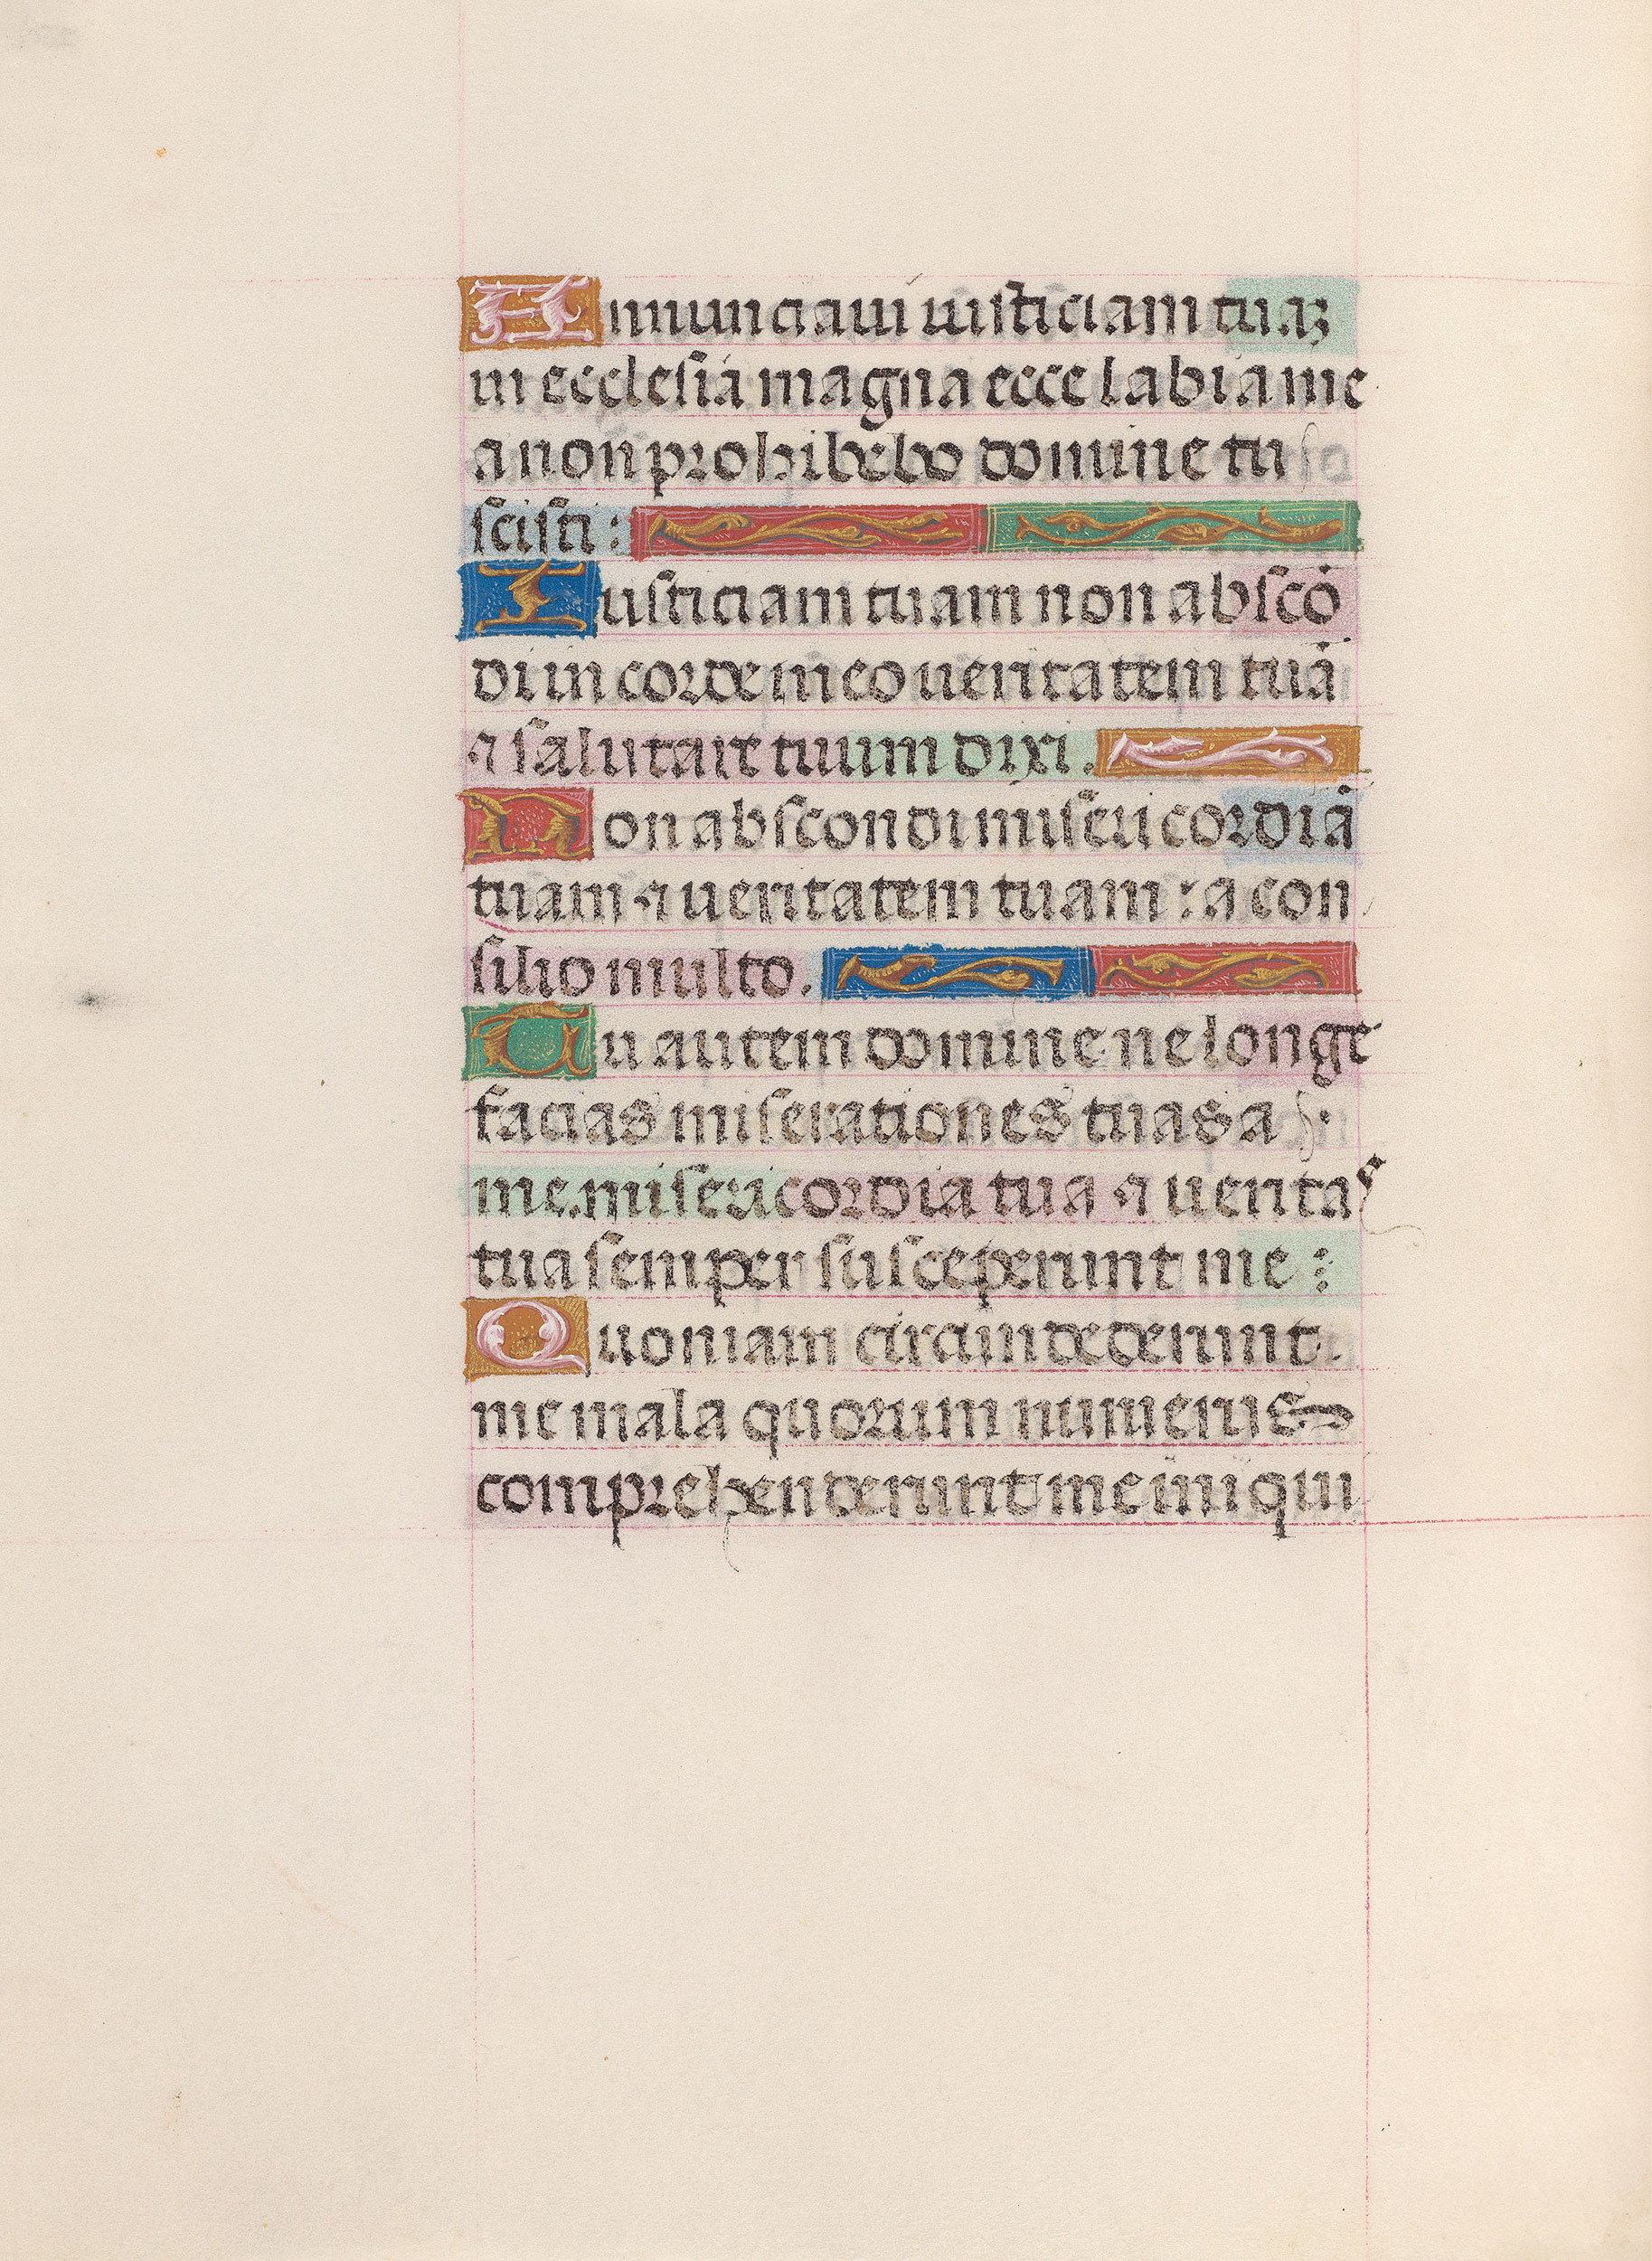 Annunciaui iusticiam tuaꝫ
in ecclesia magna ecce labia me
a non prohibebo domine tu
scisti :
Iusticiam tuam non abscō
di in corde meo ueritatem tuā
⁊ salutare tuum dixi .
Non abscondi misericordiā
tuam ⁊ ueritatem tuam : a con
silio multo .
Tu autem domine ne longe
facias miserationes tuas a
me . misericordia tua ⁊ uerita⁹
tua semper susceperunt me :
Quoniam circumdederunt
me mala quorum numerus
comprehenderunt me iniqui